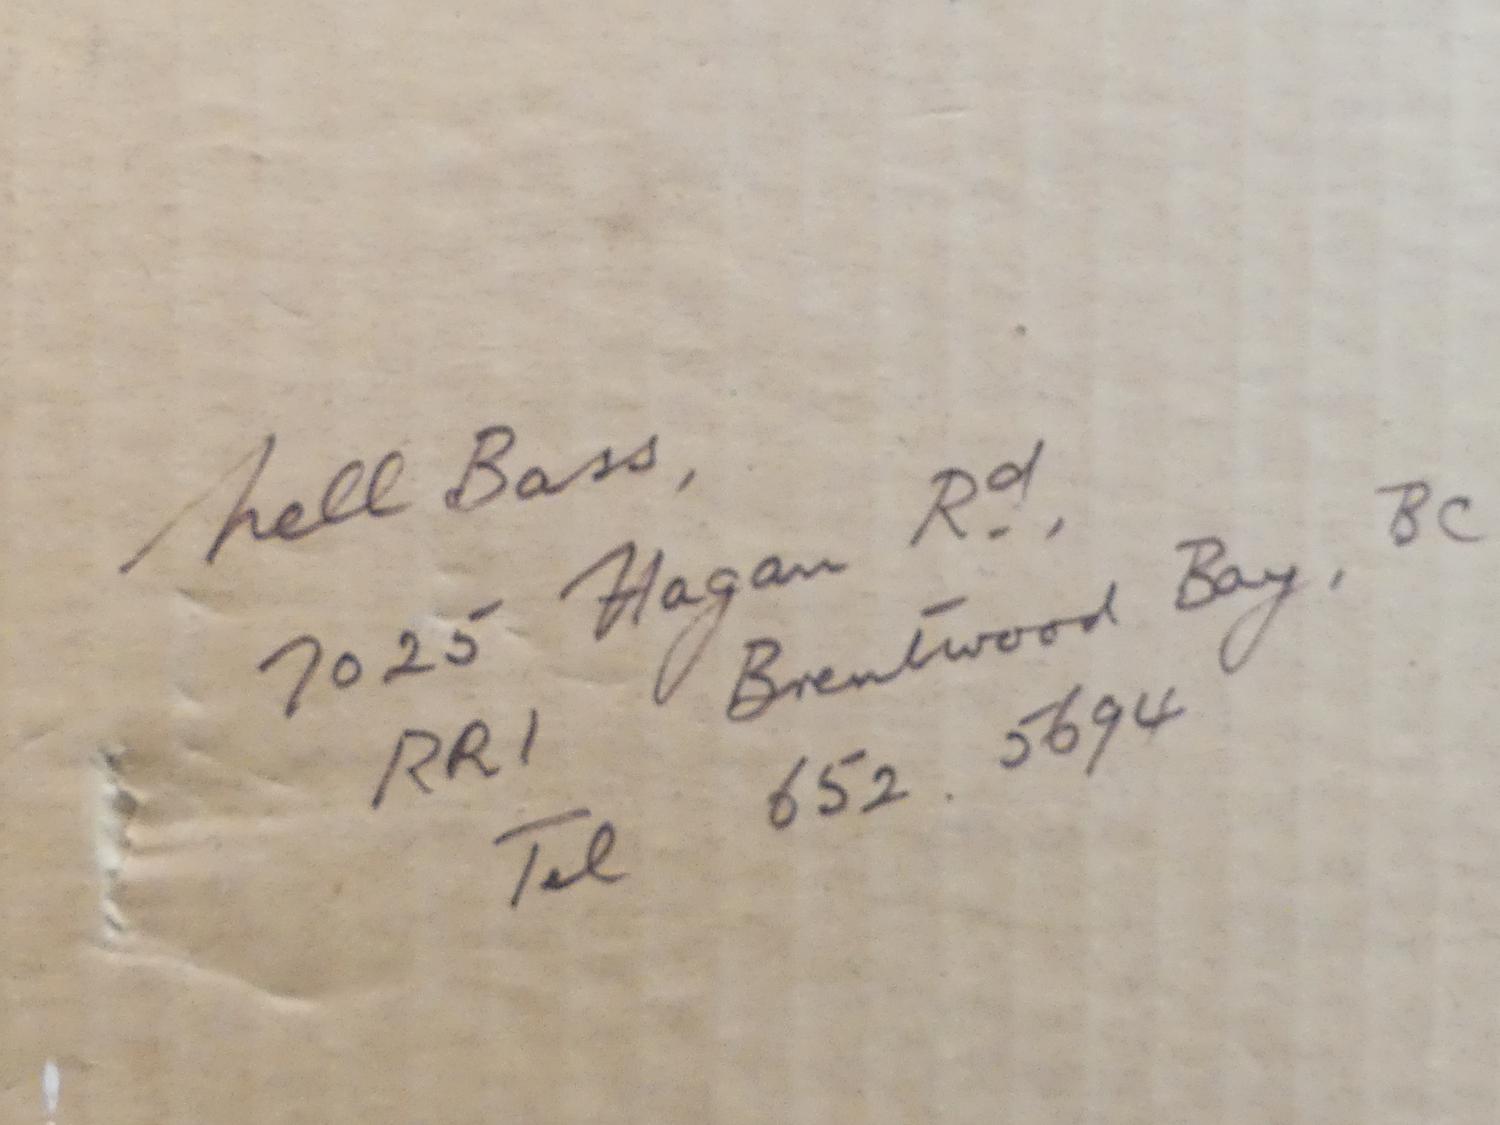 Nell Bass,
7025 Hagan Rd,
RR1 Brentwood Bay, BC
Tel 652.5694